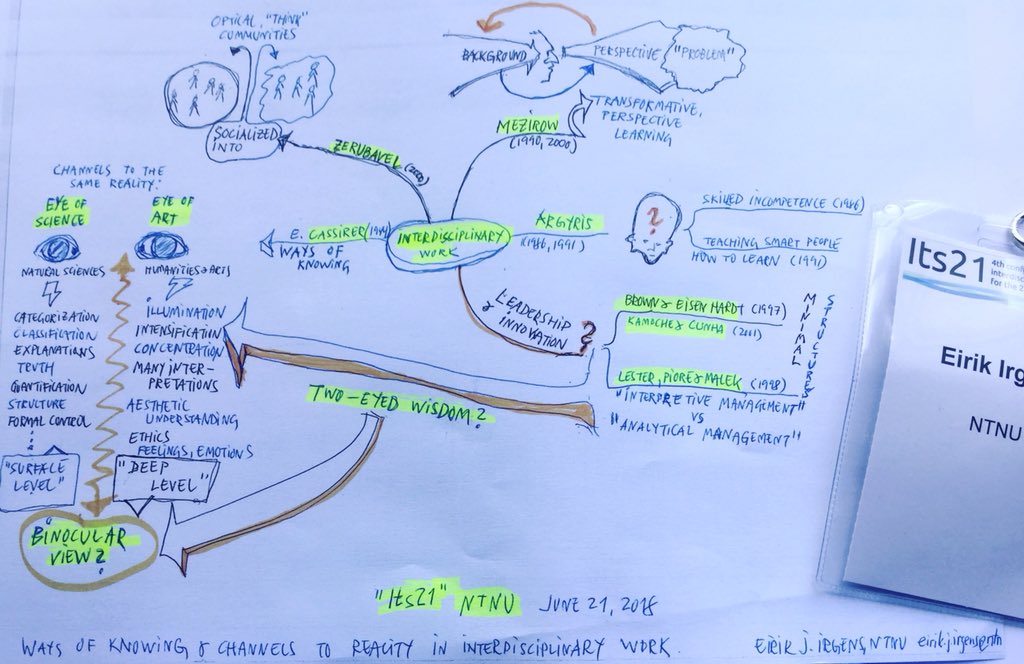 OPTICAL, "THINK"
COMMUNITIES
SOCIALIZED
INTO
ZERUBAVEL (2000)
BACKGROUND
PERSPECTIVE
"PROBLEM"
TRANSFORMATIVE,
PERSPECTIVE
LEARNING
MEZIROW
(1990, 2000)
CHANNELS TO THE
SAME REALITY:
EYE OF
SCIENCE
EYE OF
ART
NATURAL SCIENCES
HUMANITIES & ARTS
CATEGORIZATION
CLASSIFICATION
EXPLANATIONS
TRUTH
QUANTIFICATION
STRUCTURE
FORMAL CONTROL
"SURFACE
LEVEL"
ILLUMINATION
INTENSIFICATION
CONCENTRATION
MANY INTER-
PRETATIONS
AESTHETIC
UNDERSTANDING
ETHICS
FEELINGS, EMOTIONS
"DEEP
LEVEL"
BINOCULAR
VIEW?
E. CASSIRER (1944)
WAYS OF
KNOWING
INTERDISCIPLINARY
WORK
ARGYRIS
(1986, 1991)
?
SKILLED INCOMPETENCE (1986)
TEACHING SMART PEOPLE
HOW TO LEARN (1991)
LEADERSHIP
& INNOVATION
?
BROWN & EISENHARDT (1997)
KAMOCHE & CUNHA (2001)
MINIMAL
STRUCTURES
LESTER, PIORE & MALEK (1998)
"INTERPRETIVE MANAGEMENT"
VS
"ANALYTICAL MANAGEMENT"
TWO-EYED WISDOM?
"Its21" NTNU JUNE 21, 2018
WAYS OF KNOWING & CHANNELS TO REALITY IN INTERDISCIPLINARY WORK.
EIRIK J. IRGENS, NTNU
Its21
4th
for the
Eirik
NTNU